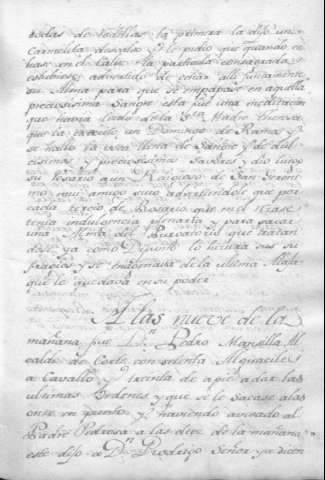 todas de rodillas la primera la dijo un
Carmelita descalzo y le pidio que quando e
hase en el Caliz la particula consagrada
estubiese advertido de echar alli juntamente
su Alma para que se empapase en aquella
preciosissima Sangre esta fue una meditacion
que havia leido de la Sta Madre theresa
que la executo, un Domingo de Ramos y
se hallo la voca llena de Sangre y de dul
cisimos y preciosissimos Sabores y dio luego
su rosario a un Religioso de San Geroni
mo mui amigo suyo advirtiendole que por
cada tercio de Rosario que en el rezase
tenia indulgencia plenaria y para sacar
una Alma del Purgatorio que tratan
dole ya como Difunto lo hiciera sus su
fragios y se informava de la ultima Alaja
que le quedava en su poder
A las nueve de la
mañana fue Dn Pedro Mansilla Al
calde de Corte con setenta Alguaciles
a Cavallo y treinta de a pie a dar las
ultimas Ordenes y que se le sacase a las
once en punto y haviendo avisado al
Padre Pedrosa a las diez de la mañana
este dijo a Dn Rodrigo Señor ya dicen